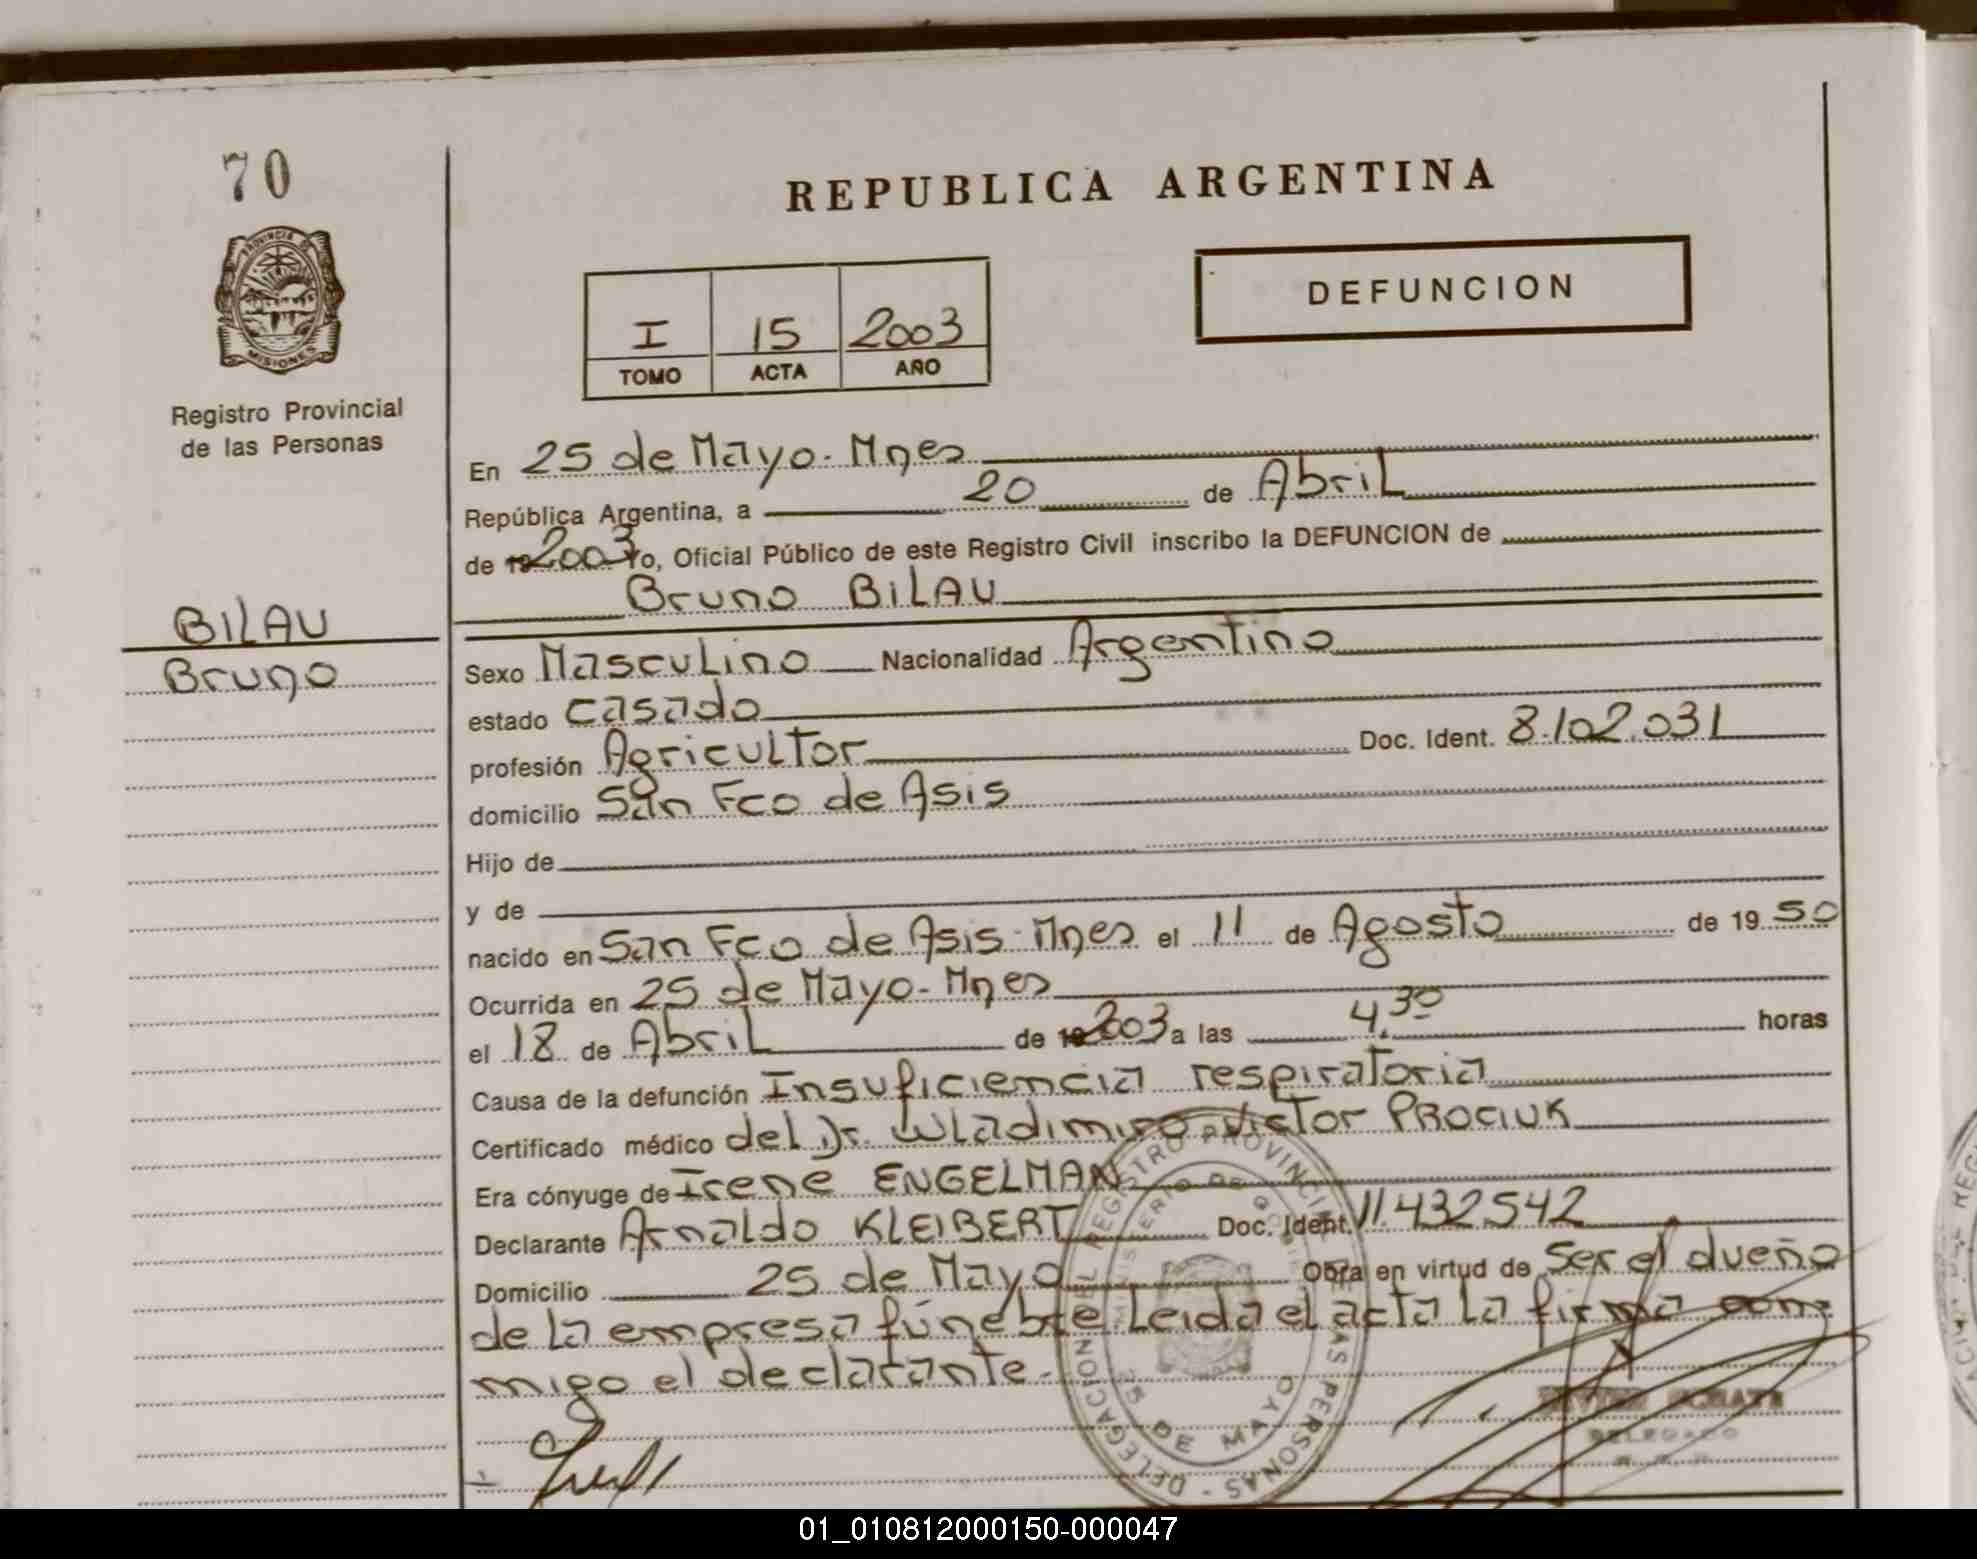 70
REPUBLICA ARGENTINA
PROVINCIA DE
MISIONES
DEFUNCION
I 15 2003
TOMO ACTA AÑO
Registro Provincial
de las Personas
En 25 de Mayo - Mnes
República Argentina, a 20 de Abril
de 19 2003 Yo, Oficial Público de este Registro Civil inscribo la DEFUNCION de
Bruno BILAU
BILAU
Bruno
Sexo Masculino Nacionalidad Argentino
estado casado
profesión Agricultor Doc. Ident. 8.102.031
domicilio San Fco de Asis
Hijo de
y de
nacido en San Fco de Asis - Mnes el 11 de Agosto de 19 50
Ocurrida en 25 de Mayo - Mnes
el 18 de Abril de 19 2003 a las 4.30 horas
Causa de la defunción Insuficiencia respiratoria
Certificado médico del Dr. Wladimiro Victor PROCIUK
Era cónyuge de Irene ENGELMAN
Declarante Arnaldo KLEIBERT Doc. Ident. 11.432.542
Domicilio 25 de Mayo Obra en virtud de Ser el dueño
de la empresa fúnebre. Leida el acta la firma con-
migo el declarante.-
DELEGACION DEL REGISTRO PROVINCIAL DE LAS PERSONAS -
MINISTERIO DE GOBIERNO
25 DE MAYO
DELEGADO
01_010812000150-000047